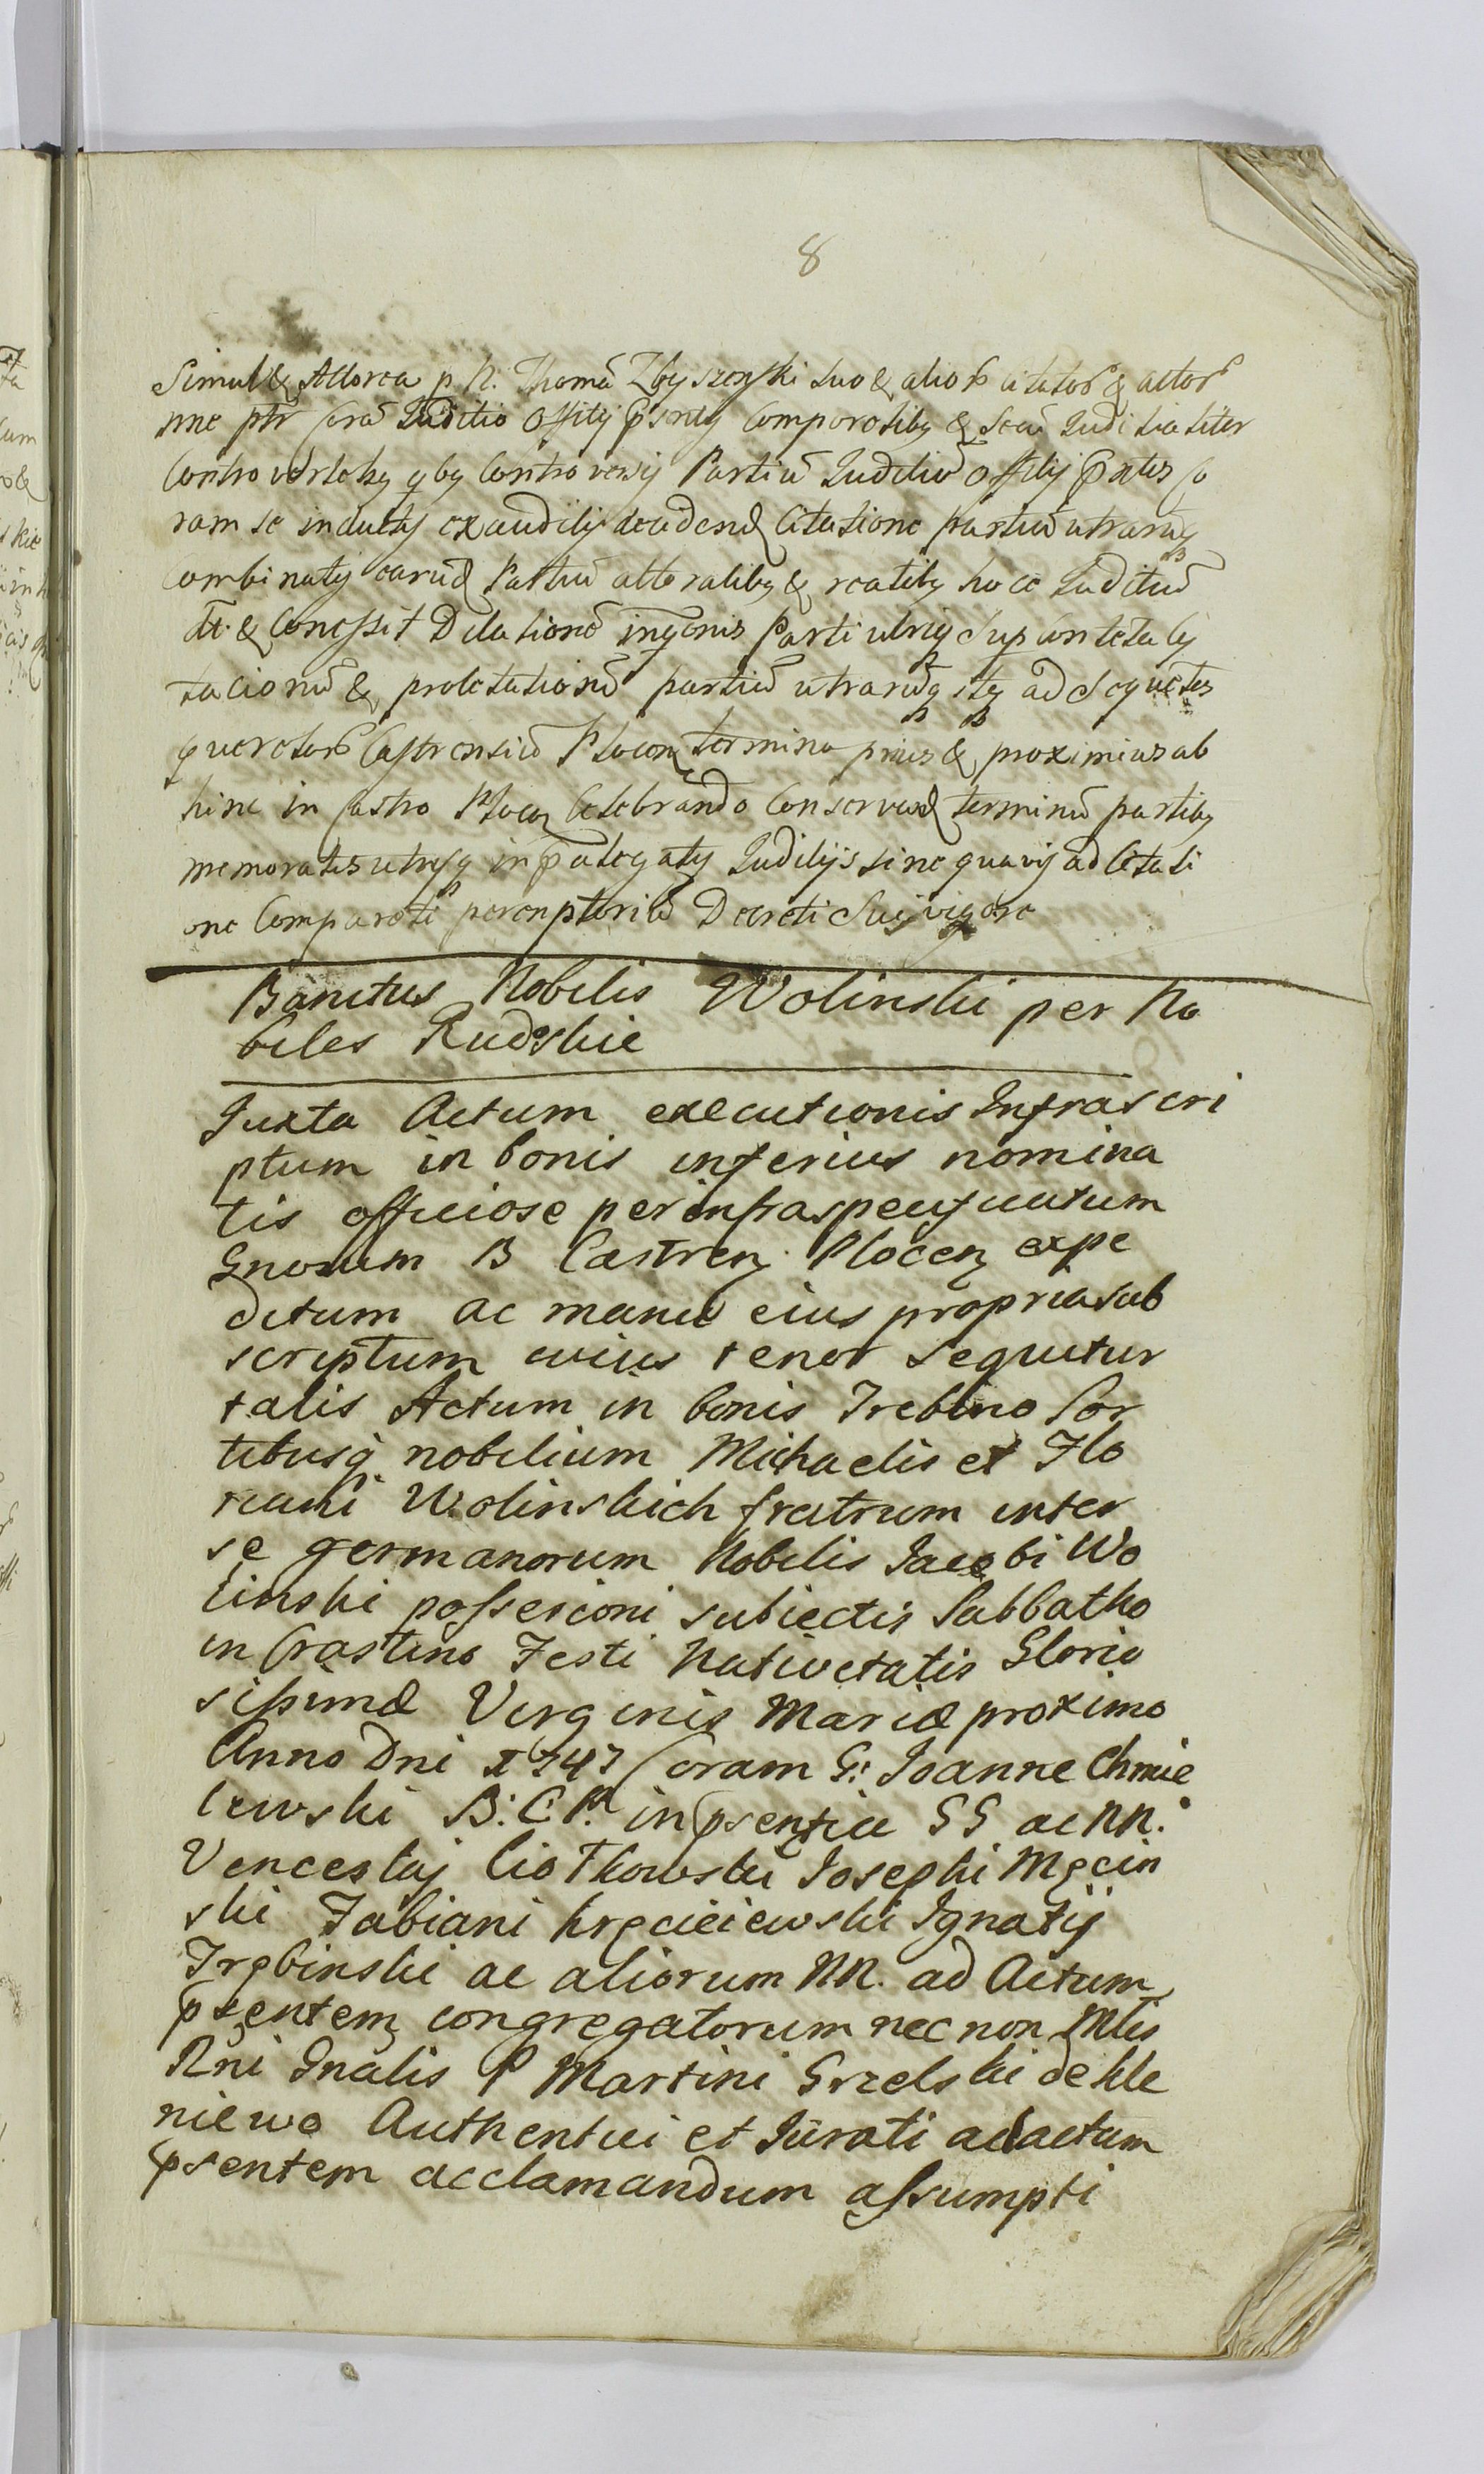 8
Simul & Actorea p N. Thomã Zbyszeyski suo & alior citator & actor
nne ptr Corã Juditio Offitij psntis Comparentibg & Seu Juditialiter
Controvertetbg qbg Controversij Partiũ Juditiũ Offitij pntis Co
ram se inductis exauditis decidend Citatione partiũ utrarũq
Combinatis earũd Partiũ actoralibg & reatibg hocce Juditiũ
& Concessit Dilationẽ ingenis Parti utriq Sup Conteta Ci
tationũ & protestationũ partiũ utrarũq stq ad Sequetes
querelar Castrensiũ Plocen termino prius & proximius ab
hinc in Castro Plocen Celebrando Conservand terminũ partibg
memoratis utrisq in Judicijs sine quavis ad Citati
one Comparõti peremptoriũ Decreti Sui vigore
Banitus Nobilis Wolinski per No
biles Rudskie
Juxta Actum executionis Infrascri
ptum in bonis inferius nomina
tis officiose per infraspecificatum
Gnosum B Castren Plocen expe
ditum ac manu eius propria sub
scriptum cuius tenor sequitur
talis Actum in bonis Trebino Sor
tibusq nobilium Michaelis et Flo
riani Wolinskich fratrum inter
se germanorum Nobilis Jacobi Wo
linski possesioni subiectis Sabbatho
in Crastino Festi Nativitatis Glorio
sissimæ Virginis Mariæ proximo
Anno Dni 1747 Coram G: Joanne Chmie
lewski B: C: P. in psentia GG ac NN.
Venceslaj Ciotkowski Josephi Męcin
ski Fabiani Kręcieiewski Ignatij
Trębinski ac aliorum NN. ad Actum
psentem congregatorum nec non Mlis
Rni Gnalis P Martini Grzelski de Kle
niewo Authentici et Jurati ad actum
psentem acclamandum assumpti